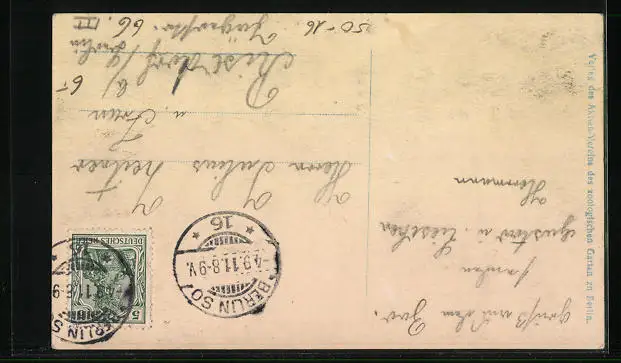 Gruß aus dem Zoo.
senden
Gustav u. Lieschen
Herrmann
Verlag des Aktien-Vereins des zoologischen Garten zu Berlin.
DEUTSCHES REICH
5
BERLIN SO
16
-4.9.11.8-9V.
Herrn Julius
u. Frau
Rixdorf
Berlin
66. III
50-16